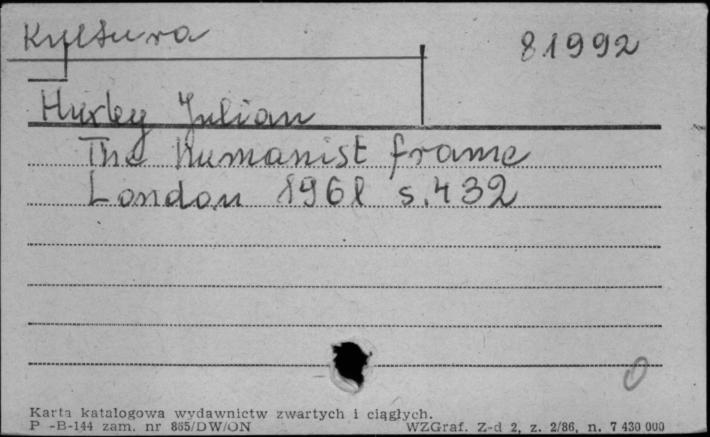 Kultura 81992
Huxley Julian
The Humanist frame
London 1961 s. 432
0
Karta katalogowa wydawnictw zwartych i ciągłych.
P -B-144 zam. nr 865/DW/ON WZGraf. Z-d 2, z. 2/86, n. 7 430 000